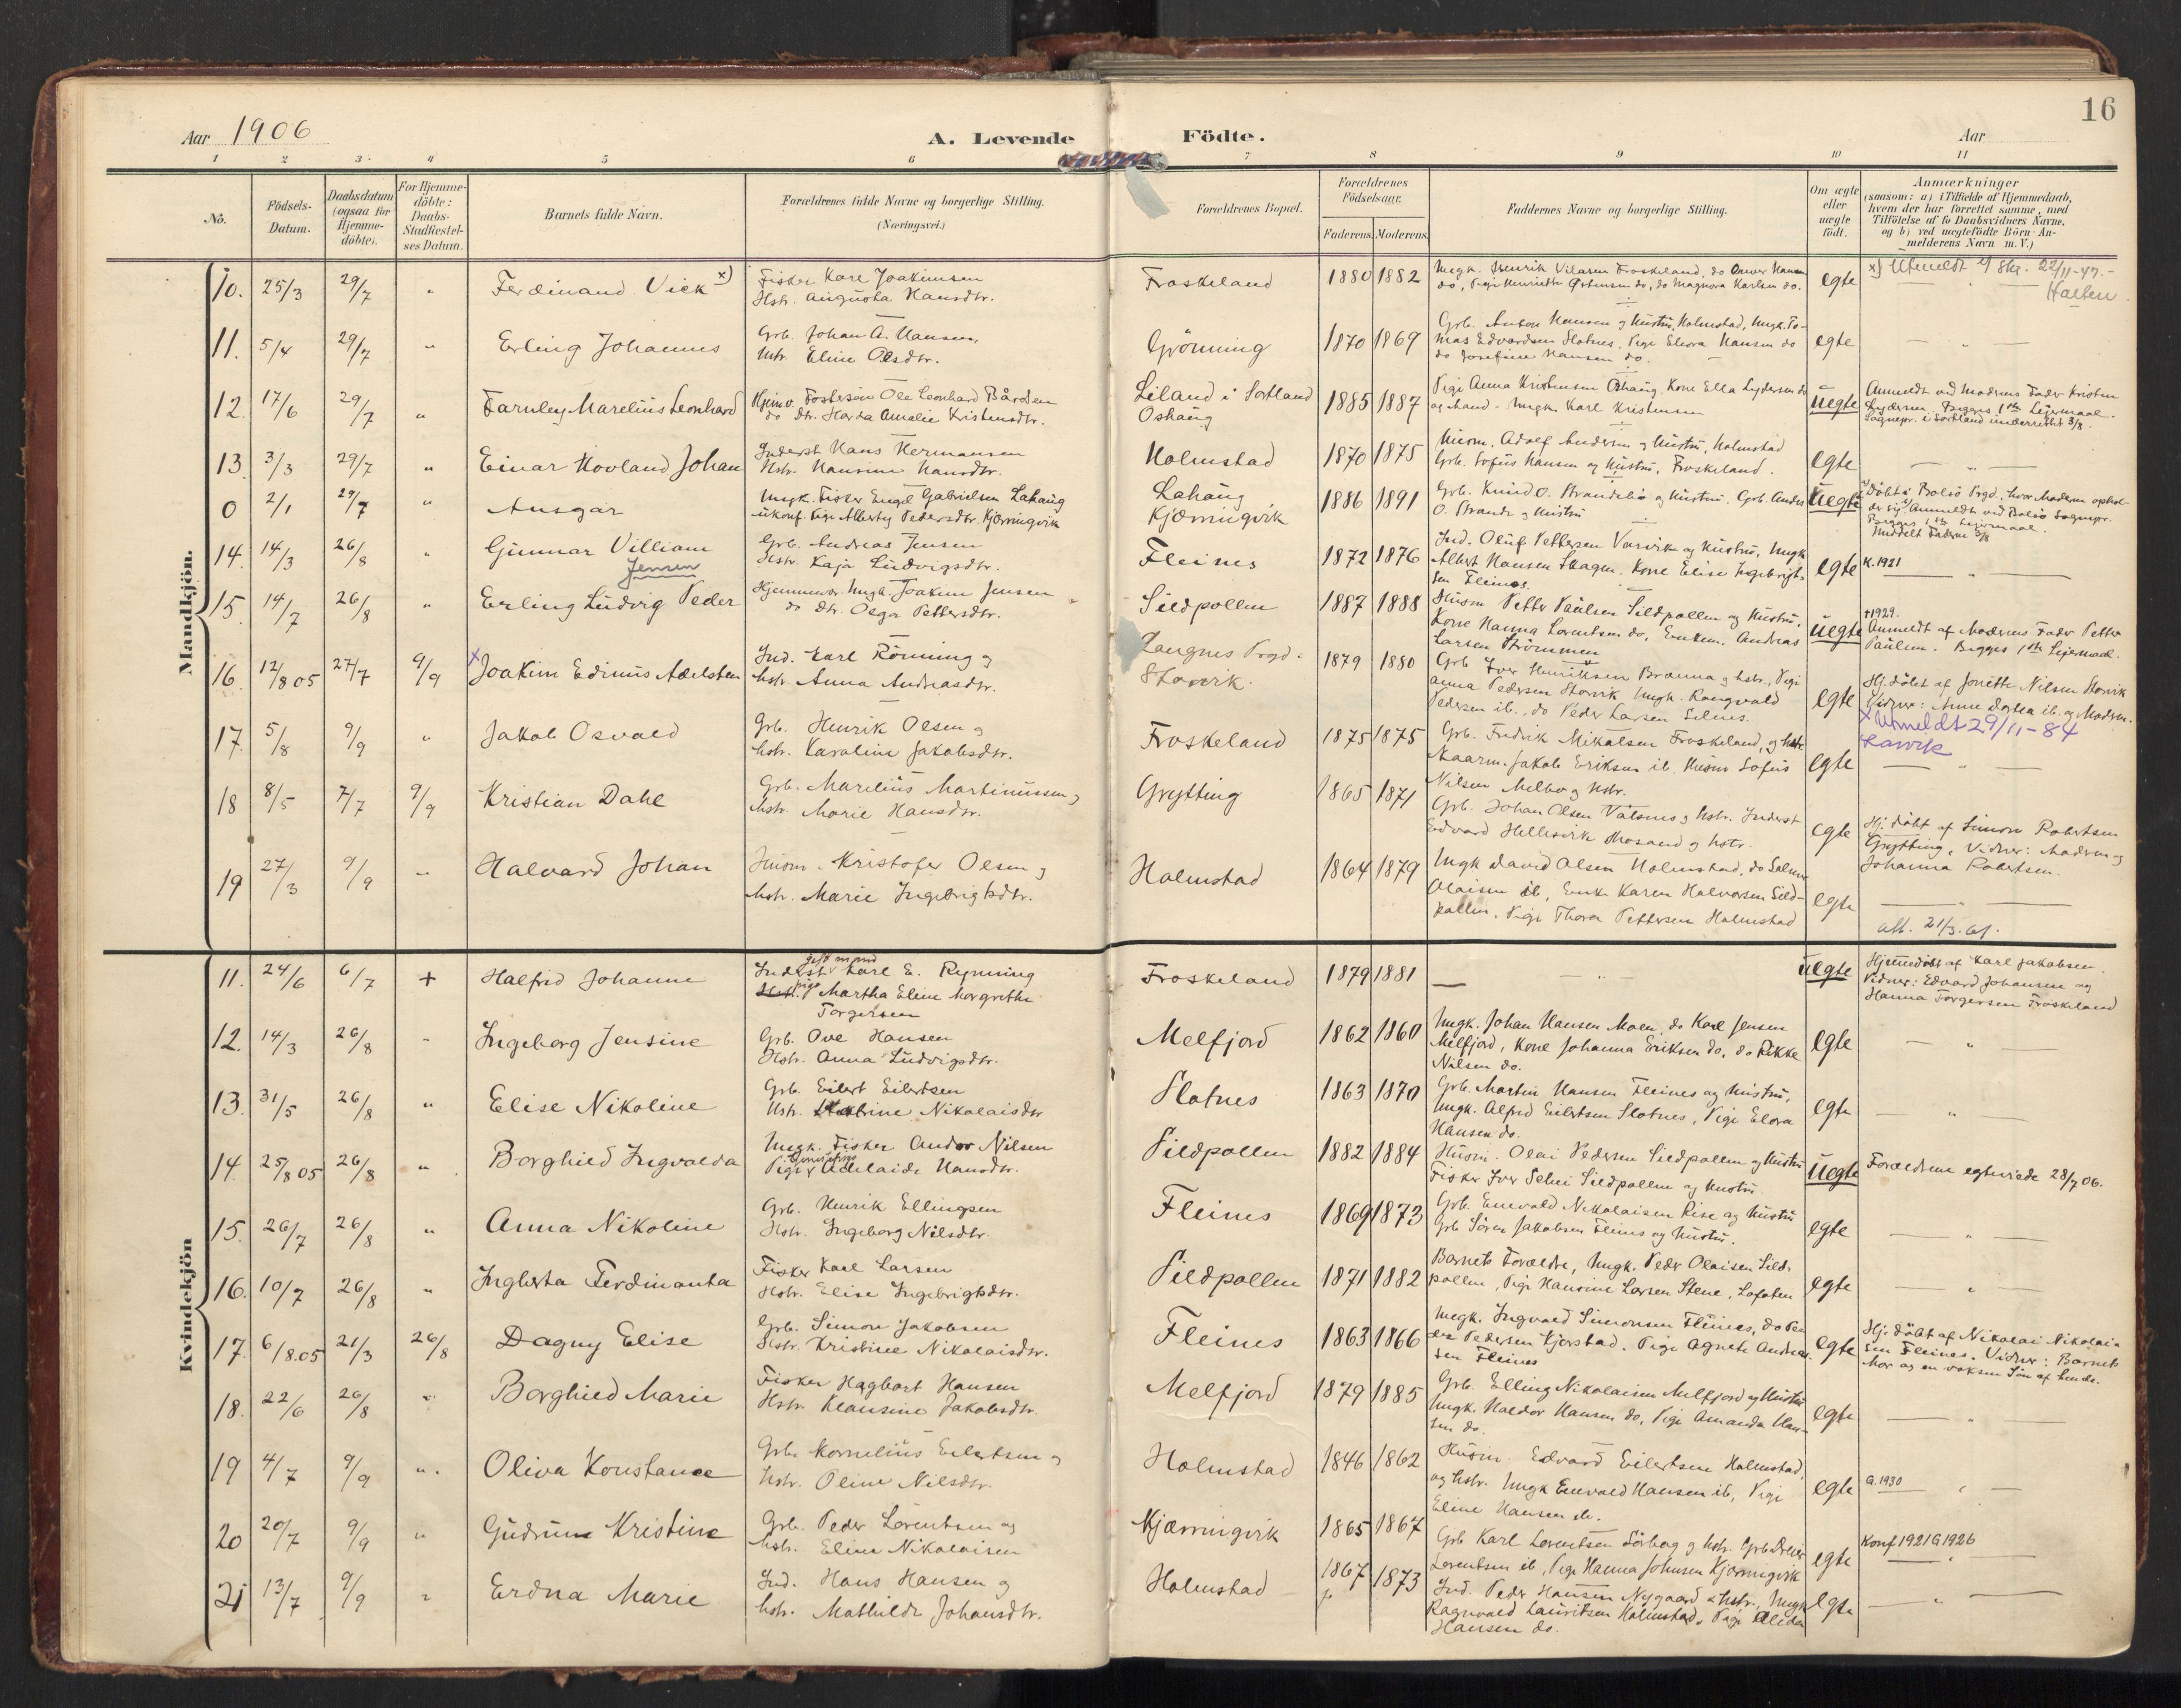 16
Aar 1906
A. Levende Födte.
Aar
1 2 3 4 5 6 7 8 9 10 11
No.
Födsels-
Datum.
Daabsdatum
(ogsaa for
Hjemme-
döbte).
For Hjemme-
döbte:
Daabs-
Stadfæstel-
ses Datum.
Barnets fulde Navn.
Forældrenes fulde Navne og borgerlige Stilling.
(Næringsvei.)
Forældrenes Bopæl.
Forældrenes
Födselsaar.
Faderens. Moderens.
Faddernes Navne og borgerlige Stilling.
Om ægte
eller
uægte
födt.
Anmærkninger
(saasom: a) i Tilfælde af Hjemmedaab,
hvem der har forrettet samme, med
Tilföielse af to Daabsvidners Navne.
og b) ved uægtefödte Börn An-
melderens Navn m. V.)
Mandkjön.
10. 25/3 29/7 " Ferdinand Vick x)
Fisker Karl Joakimsen
Hstr. Augusta Hansdtr.
Froskeland 1880 1882
Ungk. Henrik Vilasen Froskeland, do Hansen
do, Pige Henriette Østensen do, do Magnora Karlsen do.
egte
x) Utmeldt 22/11-47.-
Halten
11. 5/4 29/7 " Erling Johannes
Grb. Johan A. Hansen,
Hstr. Eline Olsdtr.
Grönning 1870 1869
Grb. Anton Hansen og Hustru, Holmstad, Ungk. To-
mas Edvardsen Slotnes, Pige Elvora Hansen do
do Josefine Hansen do.
egte
12. 17/6 29/7 " Farnley Marelius Leonhard
Hjemv. Fostersön Ole Leonhard Bårdsen
do dtr. Harda Amalie Kristensdtr.
Liland i Sortland
Oshaug
1885 1887
Pige Anna Kristensen Oshaug, Kone Ella Lydersen do
og Mand - Ungk. Karl Kristensen
uegte
Anmeldt ved Moderens Fader Kristen
Lydersen. Begges 1ste Leiermaal.
Sognepr. i Sortland underrettet 3/8.
13. 3/3 29/7 " Einar Hovland Johan
Inderst Hans Hermansen
Hstr. Hansine Hansdtr.
Holmstad 1870 1875
Husm. Adolf Andersen og Hustru, Holmstad
Grb. Sofus Hansen og Hustru, Froskeland.
egte
0 2/1 29/7 " Ansgar
Ungk. Fisker Engel Gabrielsen Lahaug
ukonf. Pige Alberty Pedersdtr. Kjørningvik
Lahaug
Kjørningvik
1886 1891
Grb. Knud O. Strandebö og Hustru. Grb. Anders
O. Strande og Hustru
uegte
Döbt i Bolsö Prgd., hvor Moderen ophol-
der sig. Anmeldt ved Bolsö Sognepr.
Begges 1ste Leiermaal.
Middelt Faderen 3/8
14. 14/3 26/8 " Gunnar Villiam
Jensen
Grb. Andreas Jensen
Hstr. Kaja Ludvigsdtr.
Fleines 1872 1876
Ind. Oluf Pettersen Varvik og Hustru, Ungk
Albert Hansen Skagen. Kone Elise Ingebrigt-
sen Fleines.
egte
K. 1921
15. 14/7 26/8 " Erling Ludvig Peder
Hjemmev. Ungk. Joakim Jensen
do dtr. Olga Pettersdtr.
Sildpollen 1887 1888
Husm Petter Paulsen Sildpollen og Hustru,
Kone Hanna Lorentsen do, Enkem. Andreas
Larsen Strömmen
uegte
†1929.
Anmeldt af Moderens Fader Petter
Paulsen. Begges 1ste Leiermaal.
16. 12/8 05 27/7 9/9 x Joakim Edinius Adelsten
Ind. Karl Rönning og
hstr. Anna Andreasdtr.
Langnes Prgd.
Storvik.
1879 1880
Grb Iver Henriksen Branna og hstr., Pige
Anna Pedersen Storvik Ungk. Rangvald
Pedersen ib., do Peder Larsen Selnes.
egte
Hj. döbt af Jonette Nilsen Storvik
Vidner: Anne Dortea ib. og Moderen.
x Utmeldt 29/11-84
Larvik
17. 5/8 9/9 " Jakob Osvald
Grb. Henrik Olsen og
hstr. Karoline Jakobsdtr.
Froskeland 1875 1875
Grb. Fredrik Mikalsen Froskeland, og hstr.
Naarm. Jakob Eriksen ib. Husm Sofus
Nilsen Melbo og hstr.
egte
18 8/5 7/7 9/9 Kristian Dahl
Grb. Marelius Martinussen og
hstr. Marie Hansdtr.
Grytting 1865 1871
Grb. Johan Olsen Valsnes og hstr. Inderst
Edvard Hellesvik Mosand og hstr.
egte
Hj. döbt af Simon Robertsen
Grytting, Vidner: Moderen og
Johanna Robertsen.
19 27/3 9/9 " Halvard Johan
Husm. Kristofer Olsen og
hstr. Marie Ingebrigtsdtr.
Holmstad 1864 1879
Ungk David Olsen Holmstad, do Selmer
Olaisen ib, Enke Karen Halvorsen Sild-
pollen, Pige Thora Pettersen Holmstad
egte
att. 21/3.61.
Kvindekjön
11. 24/6 6/7 + Halfrid Johanne
gift mand
Inderst Karl E. Rynning
Pige Martha Eline Margrethe
Torgersen
Froskeland 1879 1881
uegte
Hjemmedöbt af Karl Jakobsen.
Vidner: Edvard Johansen og
Hanna Torgersen Froskeland
12. 14/3 26/8 " Ingeborg Jensine
Grb. Ove Hansen
Hstr. Anna Ludvigsdtr.
Melfjord 1862 1860
Ungk. Johan Hansen Moen, do Karl Jensen
Melfjord, Kone Johanna Eriksen do, do Rikke
Nilsen do.
egte
13. 31/5 26/8 " Elise Nikoline
Grb. Eilert Eilertsen
Hstr. Katrine Nikolaisdtr
Slotnes 1863 1870
Grb. Martin Hansen Fleines og Hustru,
Ungk. Alfred Eilertsen Slotnes, Pige Elora
Hansen do.
egte
14. 25/8 05 26/8 " Borghild Ingvalda
Ungk. Fisker Andor Nilsen
Pige Adelaide Hansdtr.
Sildpollen 1882 1884
Husm. Olai Pedersen Sildpollen og Hustru
Fisker Iver Selnes Sildpollen og Hustru.
uegte
Forældrene egteviede 28/7 06.
15. 26/7 26/8 " Anna Nikoline
Grb. Henrik Ellingsen
Hstr. Ingeborg Nilsdtr.
Fleines 1869 1873
Grb. Enevald Nikolaisen Rise og Hustru
Grb Sören Jakobsen Fleines og Hustru.
egte
16. 10/7 26/8 " Ingberta Ferdinanta
Fisker Karl Larsen
Hstr. Elise Ingebrigtsdtr.
Sildpollen 1871 1882
Barnets Forældre, Ungk. Peder Olaisen Sild-
pollen, Pige Hansine Larsen Stene, Lofoten
egte
17. 6/8.05 21/3 26/8 Dagny Elise
Grb. Simon Jakobsen
Hstr. Kristine Nikolaisdtr.
Fleines 1863 1866
Ungk. Ingvald Simonsen Fleines, do Pe-
der Pedersen Kjørstad. Pige Agnete Andrea-
sen Fleines
egte
Hj. döbt af Nikolai Nikolai-
sen Fleines. Vidner: Barnets
Mor og en voksen Sön af hende.
18. 22/6 26/8 " Borghild Marie
Fisker Hagbart Hansen
Hstr. Klausine Jakobsdtr.
Melfjord 1879 1885
Grb. Elling Nikolaisen Melfjord og Hustru
Ungk. Haldor Hansen do, Pige Amanda Han-
sen do.
egte
19 4/7 9/9 " Oliva Konstance
Grb. Kornelius Eilertsen og
hstr. Oline Nilsdtr.
Holmstad 1846 1862
Husm. Edvard Eilertsen Holmstad,
og hstr. Ungk Enevald Hansen ib, Pige
Eline Hansen ib.
egte
G. 1930
20 20/7 9/9 " Gudrun Kristine
Grb. Peder Lorentsen og
hstr. Eline Nikolaisen
Kjørningvik 1865 1867
Grb Karl Lorentsen Sörberg og hstr. Grb
Lorentsen ib, Pige Hanna Johnsen Kjørningvik
egte
Konf 1921 G 1926
21 13/7 9/9 " Erdna Marie
Ind. Hans Hansen og
hstr. Mathilde Johansdtr.
Holmstad 1867 1873
Ind. Peder Hansen Nygaard & hstr., Ungk
Ragnvald Lauritsen Holmstad, Pige Elida
Hansen do.
egte